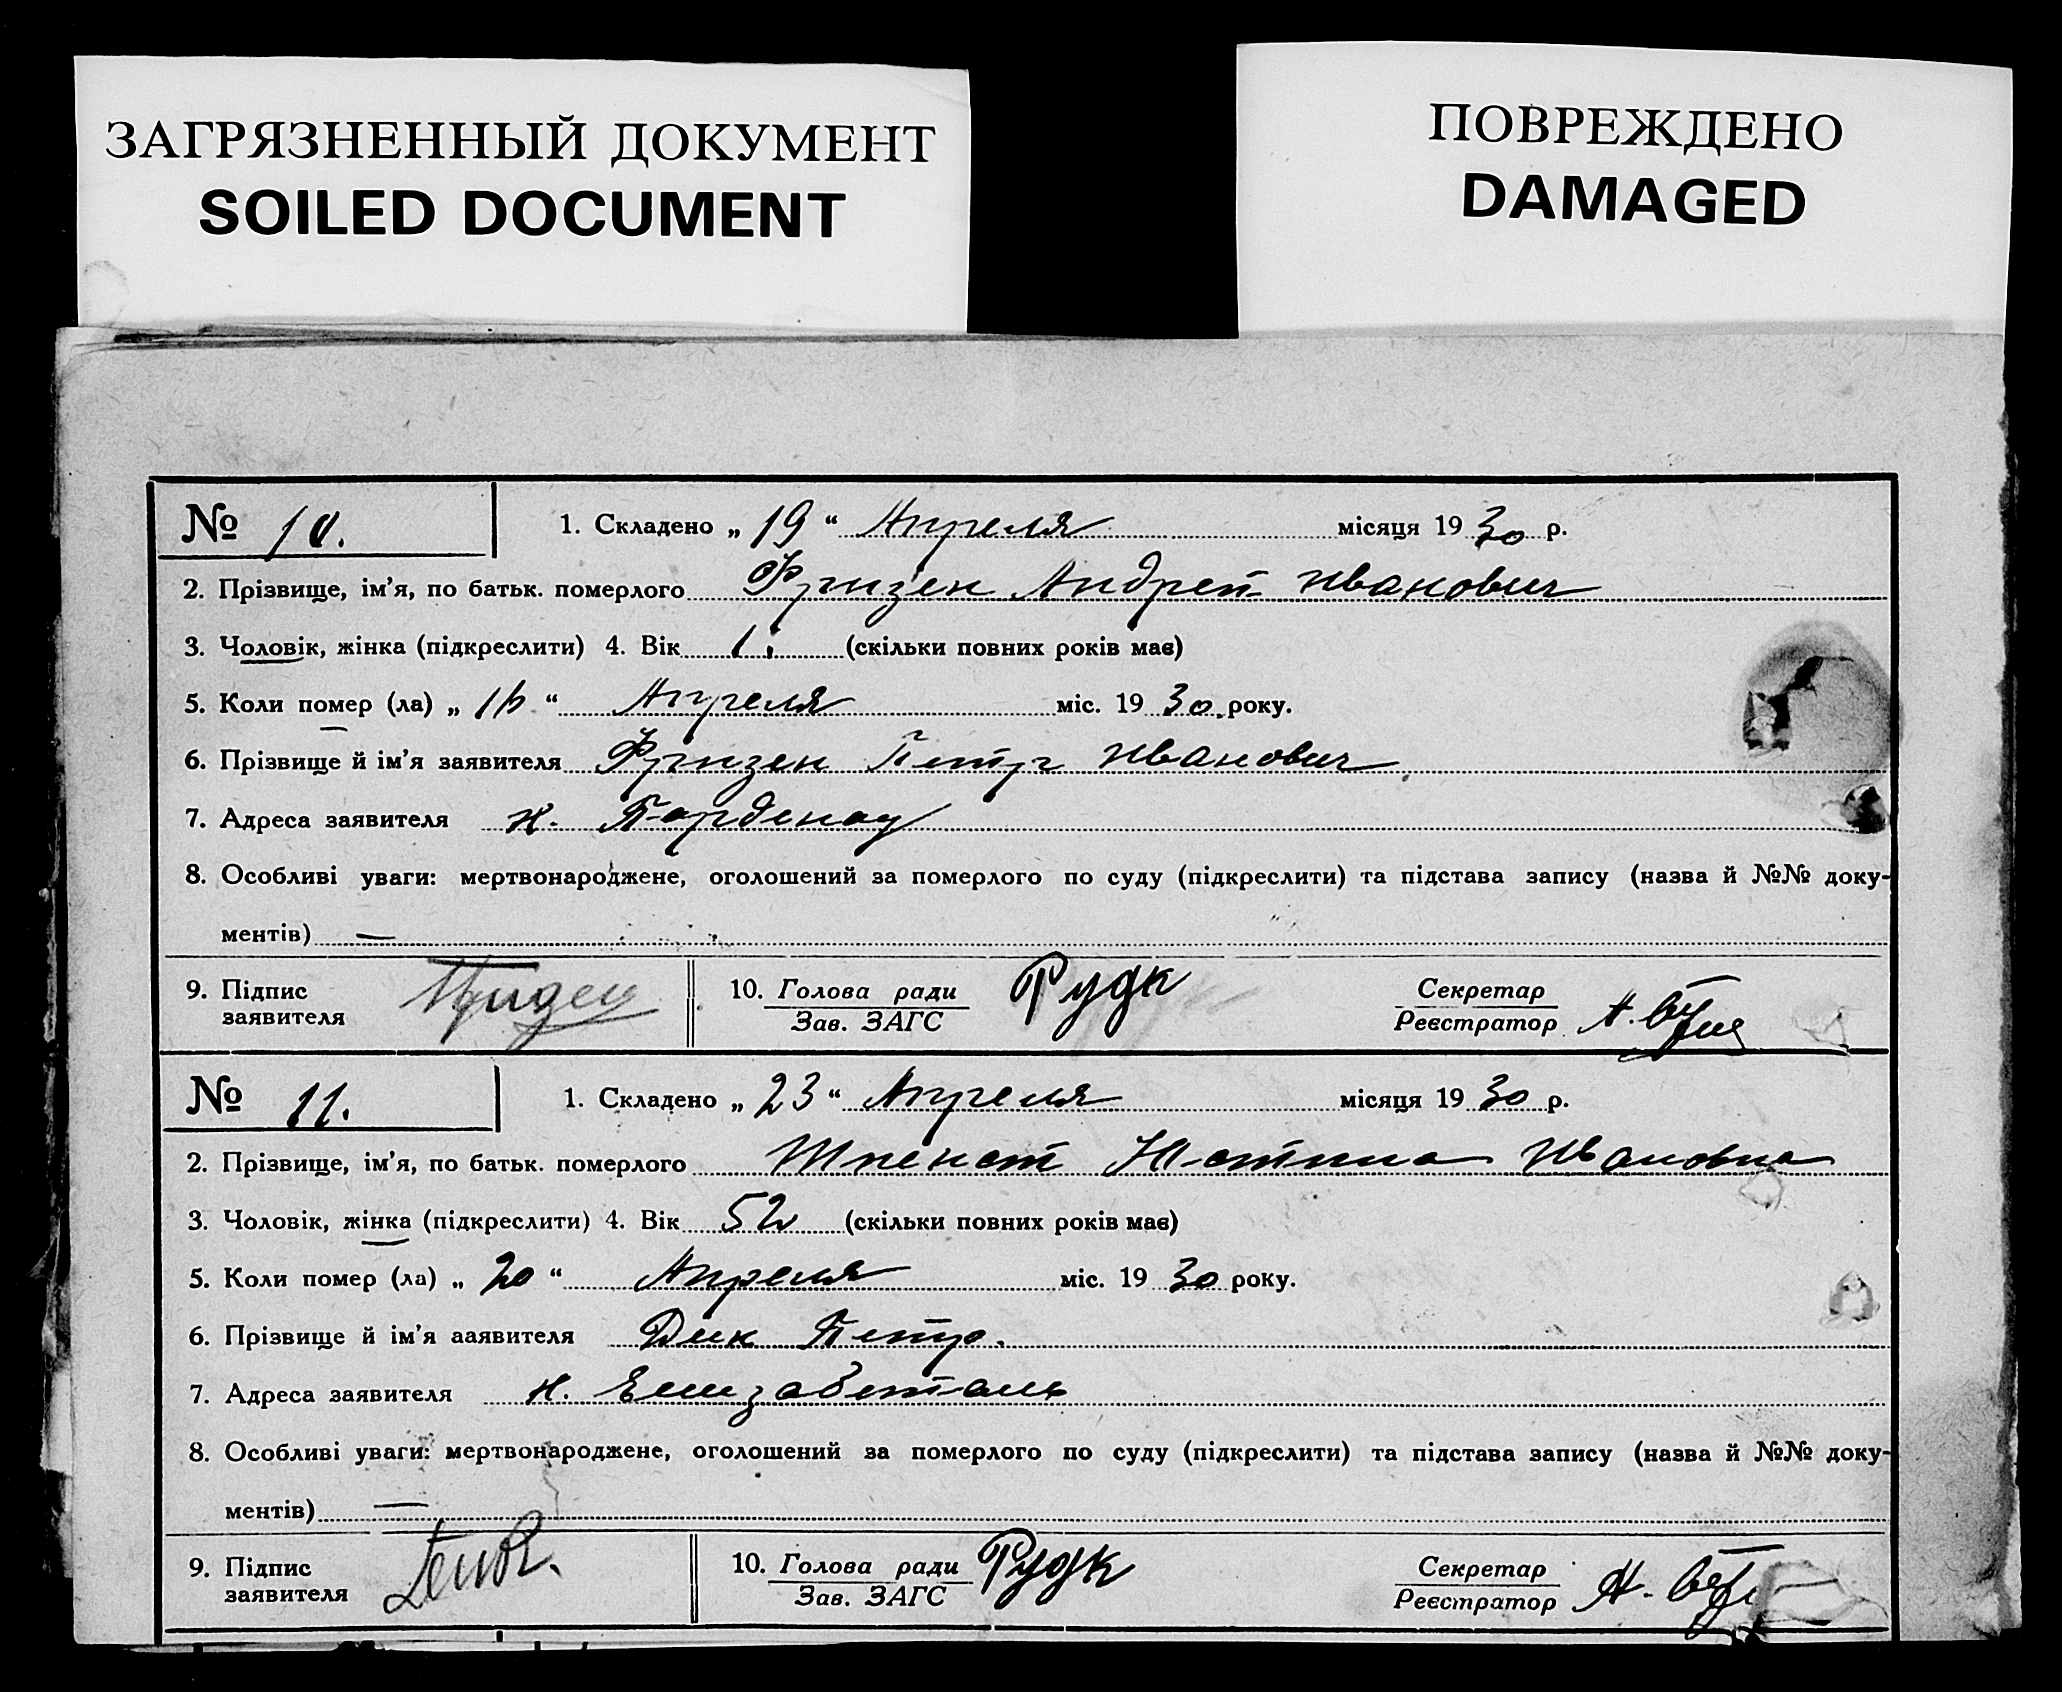 ЗАГРЯЗНЕННЫЙ ДОКУМЕНТ
SOILED DOCUMENT
ПОВРЕЖДЕНО
DAMAGED
№ 10. 1. Складено „ 19 “ Апреля місяця 19 30 р.
2. Прізвище, ім'я, по батьк. померлого Фризен Андрей Иванович
3. Чоловік, жінка (підкреслити) 4. Вік 1. (скільки повних років має)
5. Коли помер (ла) „ 16 “ Апреля міс. 19 30. року.
6. Прізвище й ім'я заявителя Фризен Петр Иванович
7. Адреса заявителя к. Парденау
8. Особливі уваги: мертвонароджене, оголошений за померлого по суду (підкреслити) та підстава запису (назва й №№ доку-
ментів) —
9. Підпис заявителя 10. Голова ради Рудк Секретар
Зав. ЗАГС Реєстратор А.
№ 11. 1. Складено „ 23 “ Апреля місяця 19 30 р.
2. Прізвище, ім'я, по батьк. померлого Шпенст Юстина Ивановна
3. Чоловік, жінка (підкреслити) 4. Вік 52 (скільки повних років має)
5. Коли помер (ла) „ 20 “ Апреля міс. 19 30 року.
6. Прізвище й ім'я ааявителя Дик Петр.
7. Адреса заявителя к. Елизабетталь
8. Особливі уваги: мертвонароджене, оголошений за померлого по суду (підкреслити) та підстава запису (назва й №№ доку-
ментів) —
9. Підпис заявителя 10. Голова ради Рудк Секретар
Зав. ЗАГС Реєстратор А.